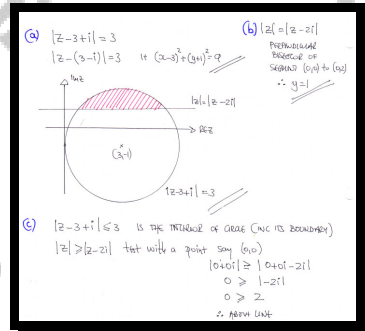 (a) |z-3+i| = 3
|z-(3-i)| = 3 IE (x-3)²+(y+1)² = 9
(b) |z| = |z-2i|
PERPENDICULAR
BISECTOR OF
SEGMENT (0,0) to (0,2)
∴ y=1
Im z
|z| = |z-2i|
Re z
(3,-1)
|z-3+i| = 3
(c) |z-3+i| ≤ 3 IS THE INTERIOR OF CIRCLE (INC ITS BOUNDARY)
|z| ≥ |z-2i| test with a point say (0,0)
|0+0i| ≥ |0+0i-2i|
0 ≥ |-2i|
0 ≥ 2
∴ ABOVE LINE